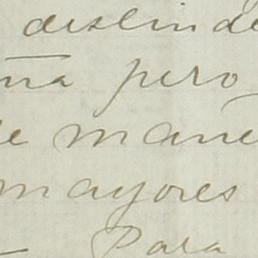 deslinde
ña pero
de mane
mayores
Para